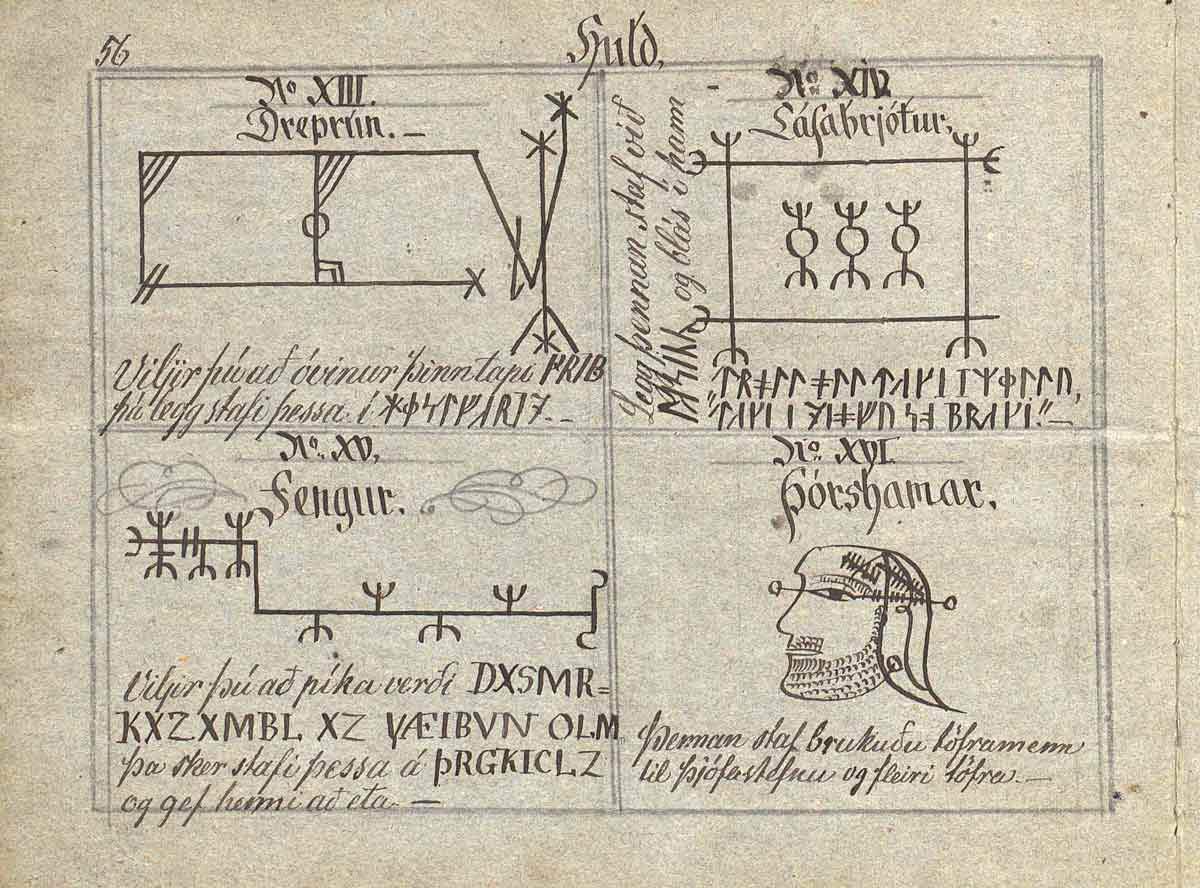 56
Huld,
No XIII.
Dreprún. —
Viljir þú að óvinur þinn tapi
þú legg stafi þessa í
No XIV.
Lásabrjótur,
Legg þennan staf við
og blás í hann
No XV,
Fengur.
Viljir þú að píka verði DXSMR=
KXZ XMBL XZ YÆIBVN OLM
þa sker stafi þessa á ÞRGKICLZ
og gef henni að eta. —
No XVI.
Þórshamar.
Þennan staf brukuðu töframenn
til þjófastefnu og fleiri töfra. —